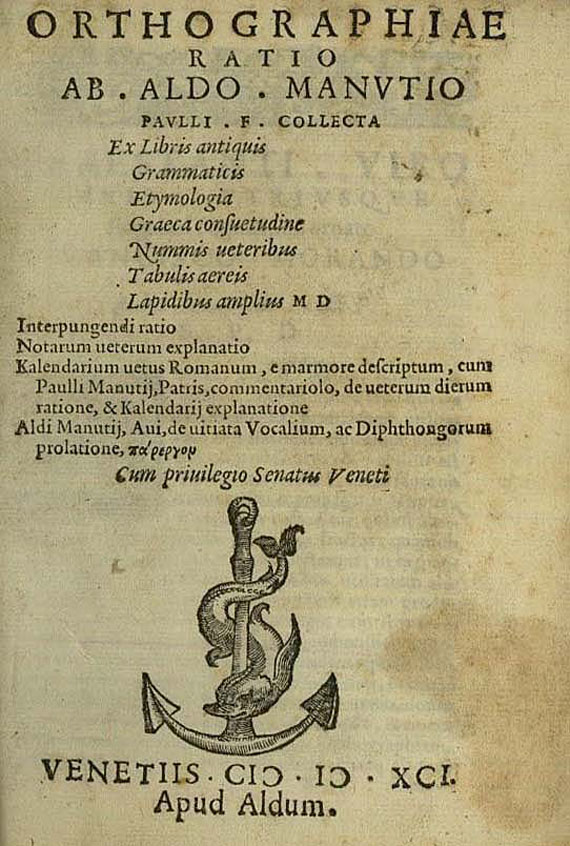 ORTHOGRAPHIAE
RATIO
AB . ALDO . MANVTIO
PAVLLI . F . COLLECTA
Ex Libris antiquis
Grammaticis
Etymologia
Graeca conſuetudine
Nummis ueteribus
Tabulis aereis
Lapidibus amplius M D
Interpungendi ratio
Notarum ueterum explanatio
Kalendarium uetus Romanum, e marmore deſcriptum, cum
Paulli Manutij, Patris, commentariolo, de ueterum dierum
ratione, & Kalendarij explanatione
Aldi Manutij, Aui, de uitiata Vocalium, ac Diphthongorum
prolatione, πάρεργον
Cum priuilegio Senatus Veneti
VENETIIS . CIↃ . IↃ . XCI.
Apud Aldum.